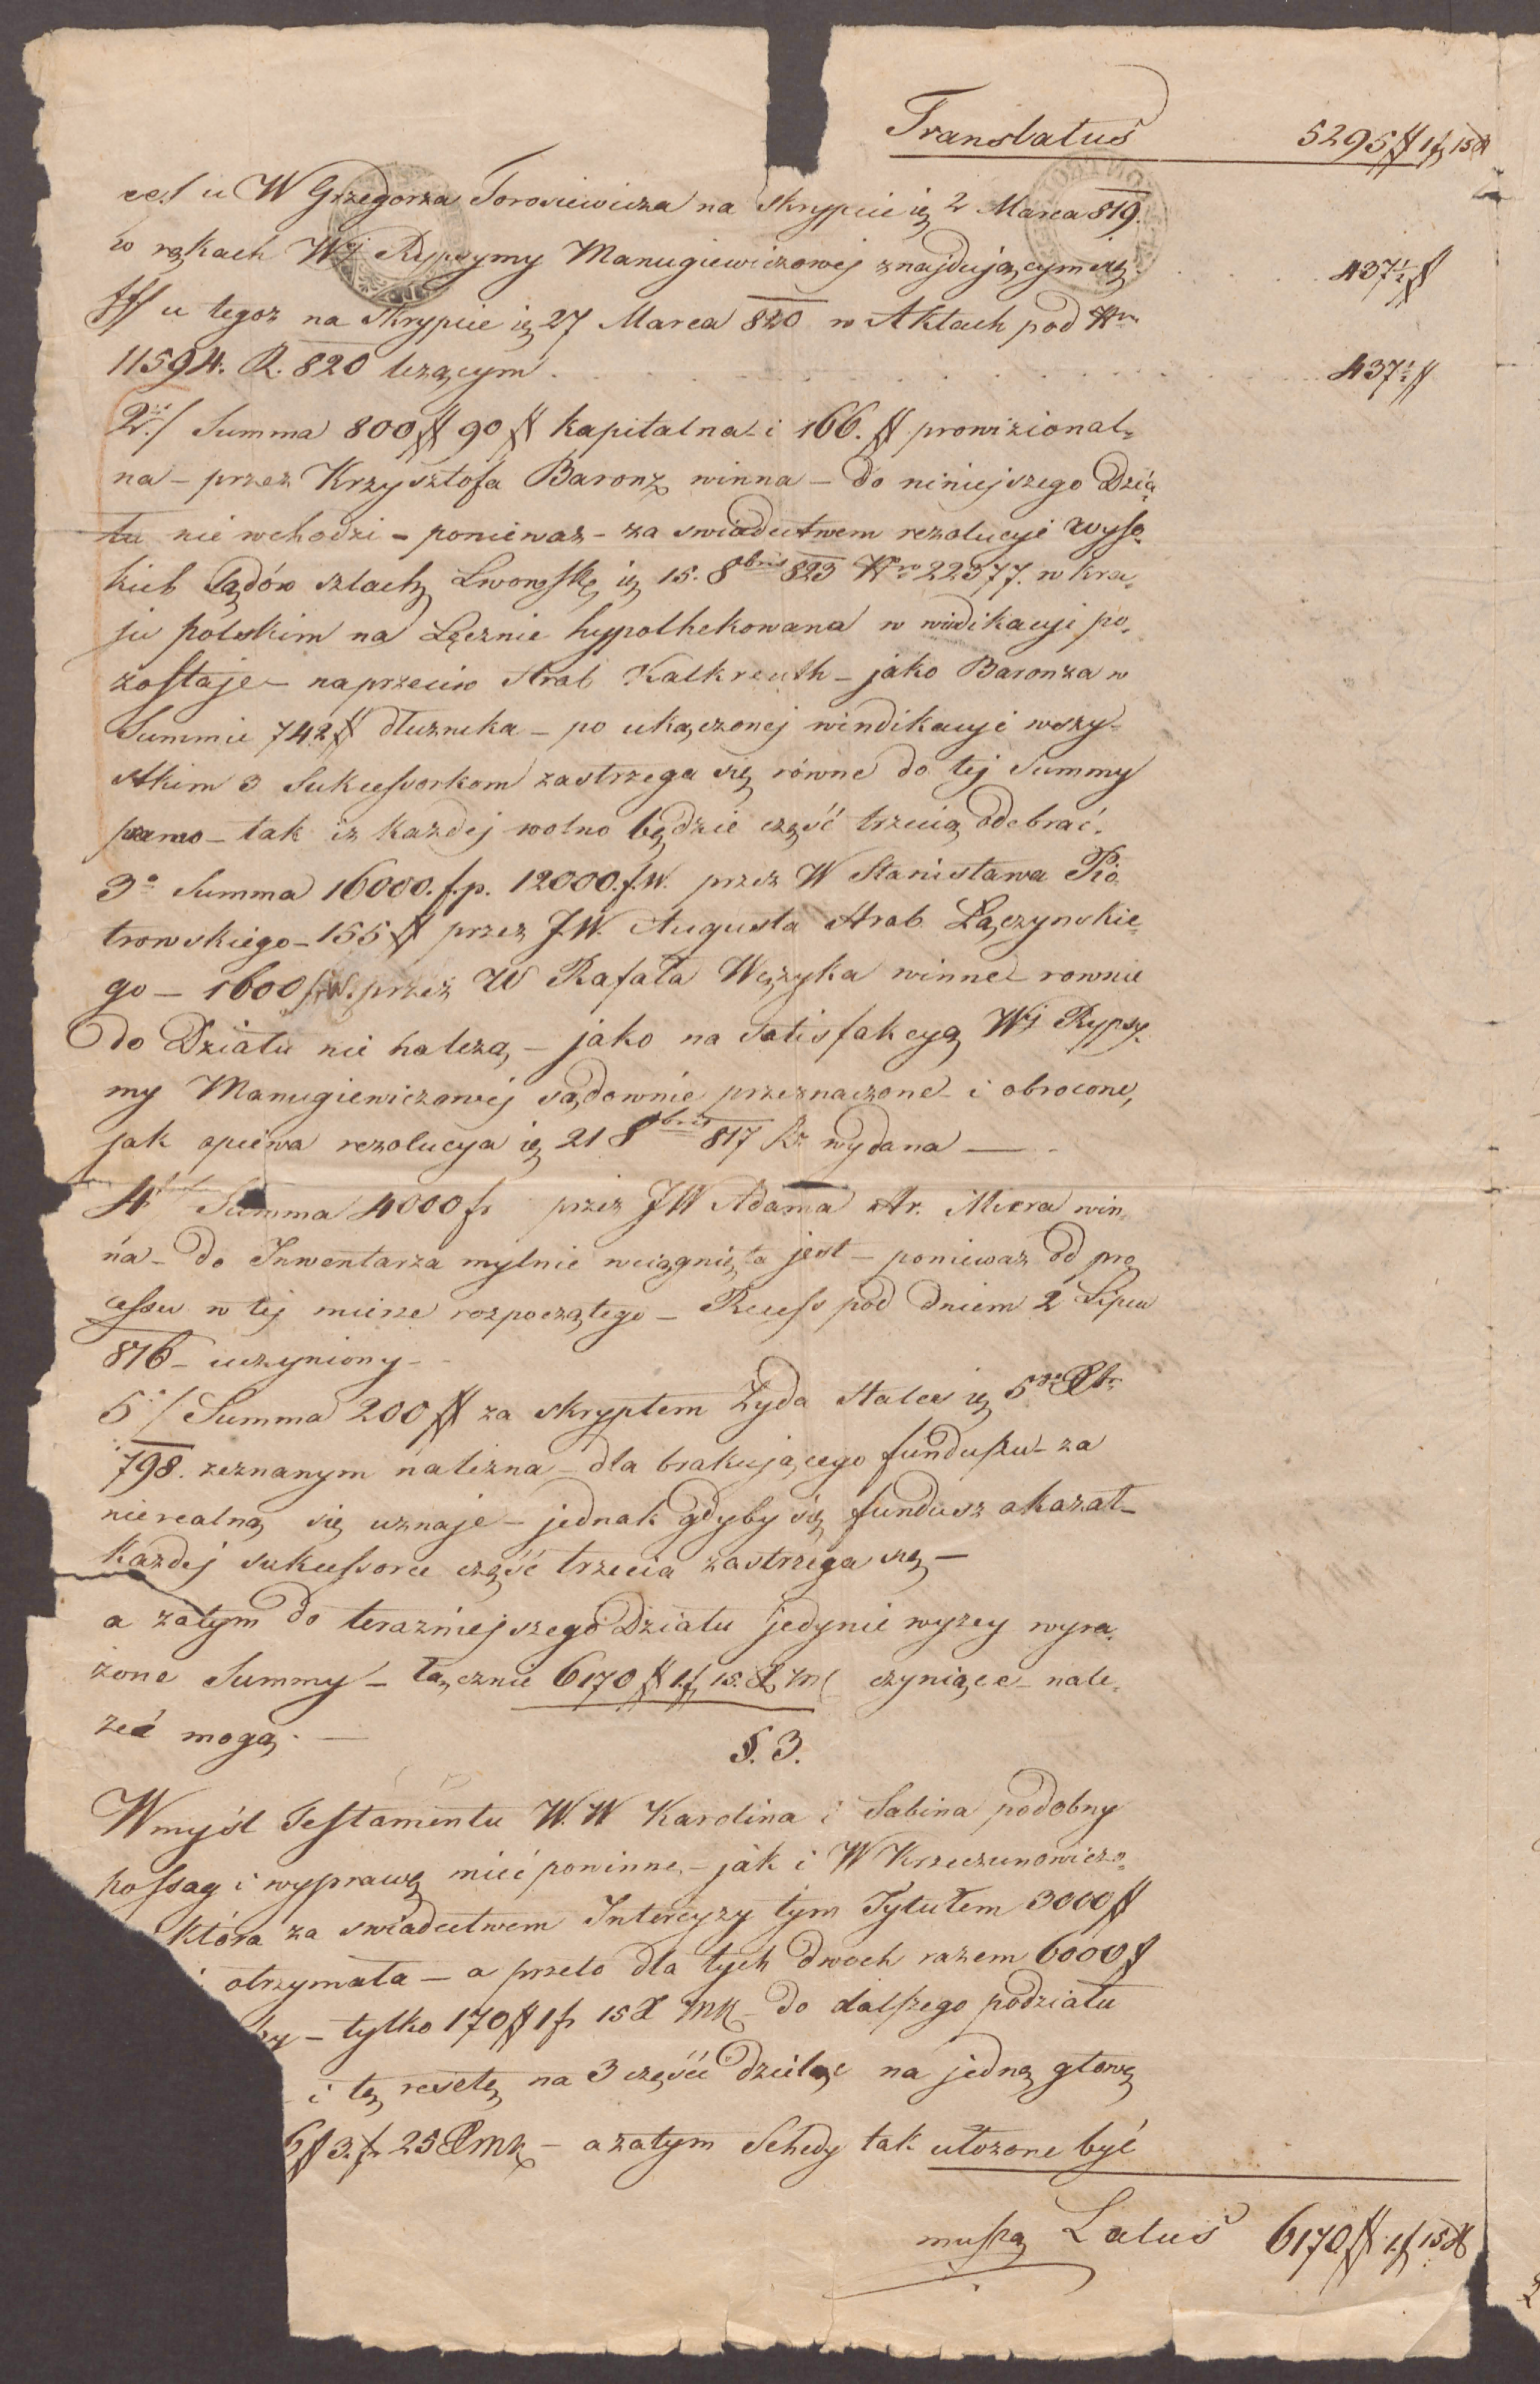 Translatus 5295 ## 1 f 15 x
eel u W Grzegorza Torosiewicza na Skrypcie ię 2 Marca 819.
w rękach Wj Rypsymy Manugiewiczowej znajdującym się 437½ #
fff u tegoz na Skrypcie ię 27 Marca 820 w Aktach pod Nrm
11594. R. 820 lezącym . . . . 437½ #
2./ Summa 800 ## 90 ## kapitalna i 166. ## prowizional„
na – przez Krzysztofa Baronz winna – do niniejszego Dzia„
łu nie wchodzi – poniewaz – za swiadectwem rezolucyi wyso„
kich Sądów szlach Lwowsk ię 15. 8bris 823 Nro 22377. w kra„
ju polskim na Lęcznie hypothekowana w windikacyi po„
zostaje – naprzeciw Hrab Kalkreuth – jako Baronza w
Summie 742 ## dłuznika – po ukączonej windikacyi wszy„
stkim 3 Sukcessorkom zastrzega się równe do tej Summy
prawo – tak iz kazdej wolno będzie część trzecią odebrać.
3o Summa 16000. f. p. 12000. f. W. przez W Stanisława Pio„
trowskiego – 155 ## przez J.W. Augusta Hrab Łączynskie„
go – 1600 f. W. przez W Rafała Wężyka winne – rownie
do Działu nie należą – jako na satisfakcyą Wj Rypsy„
my Manugiewiczowej sądownie przeznaczone i obrocone,
jak opiewa rezolucya ię 21 8bris 817 Rz wydana —
4 Summa 4000 fr przez JW Adama Hr. Miera win„
na – do Inwentarza mylnie wciągnięta jest – poniewaz od pro„
cessu w tej mierze rozpoczątego – Recess pod dniem 2 Lipca
816 – uczyniony –
5./ Summa 200 ## za skryptem Zyda Stales ię 5
798. zeznanym nalezna – dla brakującego funduszu – za
nierealną się uznaje – jednak gdyby się fundusz okazał –
kazdej sukcessorce część trzecia zastrzega się —
a zatym do terazniejszego Działu jedynie wyzey wyra„
żone Summy – łącznie 6170 ## 1 f. 15. X MK czyniące – nale„
zeć mogą. —
§. 3.
W myśl Testamentu W.W Karolina i Sabina podobny
possag i wyprawę mieć powinne – jak i W Krzeczunowiczo„
która za swiadectwem Intercyzy tym Tytułem 3000 ##
otrzymała – a przeto dla tych dwoch razem 6000 #
– tylko 170 ## 1 fr 15 X MK – do dalszego podziału
i tę resztę na 3 części dzieląc na jedną głowę
6 ## 3. fr 25 X MK – a zatym Schedy tak ułozone być
muszą Latus 6170 ## 1 f 15 X